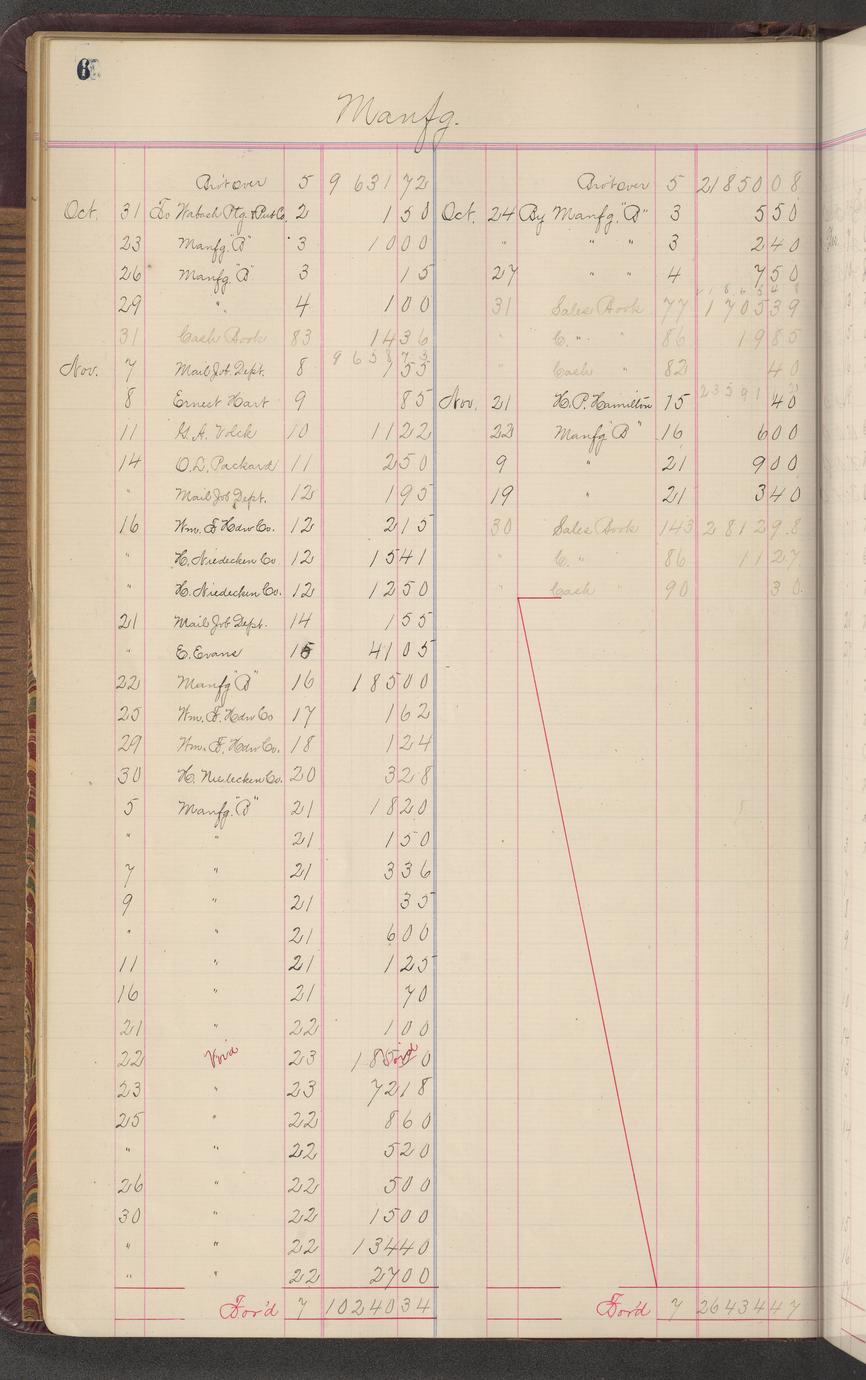 6
Manfg.
Bro't over 5 9 631 72
Oct. 31 To Wabash Ptg. & Pub Co. 2 1 50
23 Manfg. "B" 3 10 00
26 Manfg. "B" 3 15
29 " 4 1 00
31 Cash Book 83 14 36
9 658 73
Nov. 7 Mail Job Dept. 8 1 55
8 Ernest Hart 9 85
11 G. A. Volck 10 11 22
14 O. L. Packard 11 2 50
" Mail Job Dept. 12 1 95
16 Wm. F. Hdw Co. 12 2 15
" H. Niedecken Co. 12 15 41
" H. Niedecken Co. 12 12 50
21 Mail Job Dept. 14 1 55
" E. Evans 15 41 05
22 Manfg "B" 16 185 00
25 Wm. F. Hdw Co 17 1 62
29 Wm. F. Hdw Co. 18 1 24
30 H. Niedecken Co. 20 3 28
5 Manfg. "B" 21 18 20
" " 21 1 50
7 " 21 3 36
9 " 21 35
" " 21 6 00
11 " 21 1 25
16 " 21 70
21 " 22 1 00
22 Void 23 185 00 Void
23 " 23 72 18
25 " 22 8 60
" " 22 5 20
26 " 22 5 00
30 " 22 15 00
" " 22 134 40
" " 22 27 00
For'd 7 10240 34
Bro't over 5 21850 08
Oct. 24 By Manfg. "B" 3 5 50
" " " 3 2 40
27 " " 4 7 50
31 Sales Book 77 1705 39
" C. " " 86 19 85
" Cash " 82 40
Nov. 21 H. P. Hamilton 15 40
22 Manfg "B" 16 6 00
9 " 21 9 00
19 " 21 3 40
30 Sales Book 143 2812 98
" C. " 86 11 27
" Cash " 90 30
For'd 7 26434 47